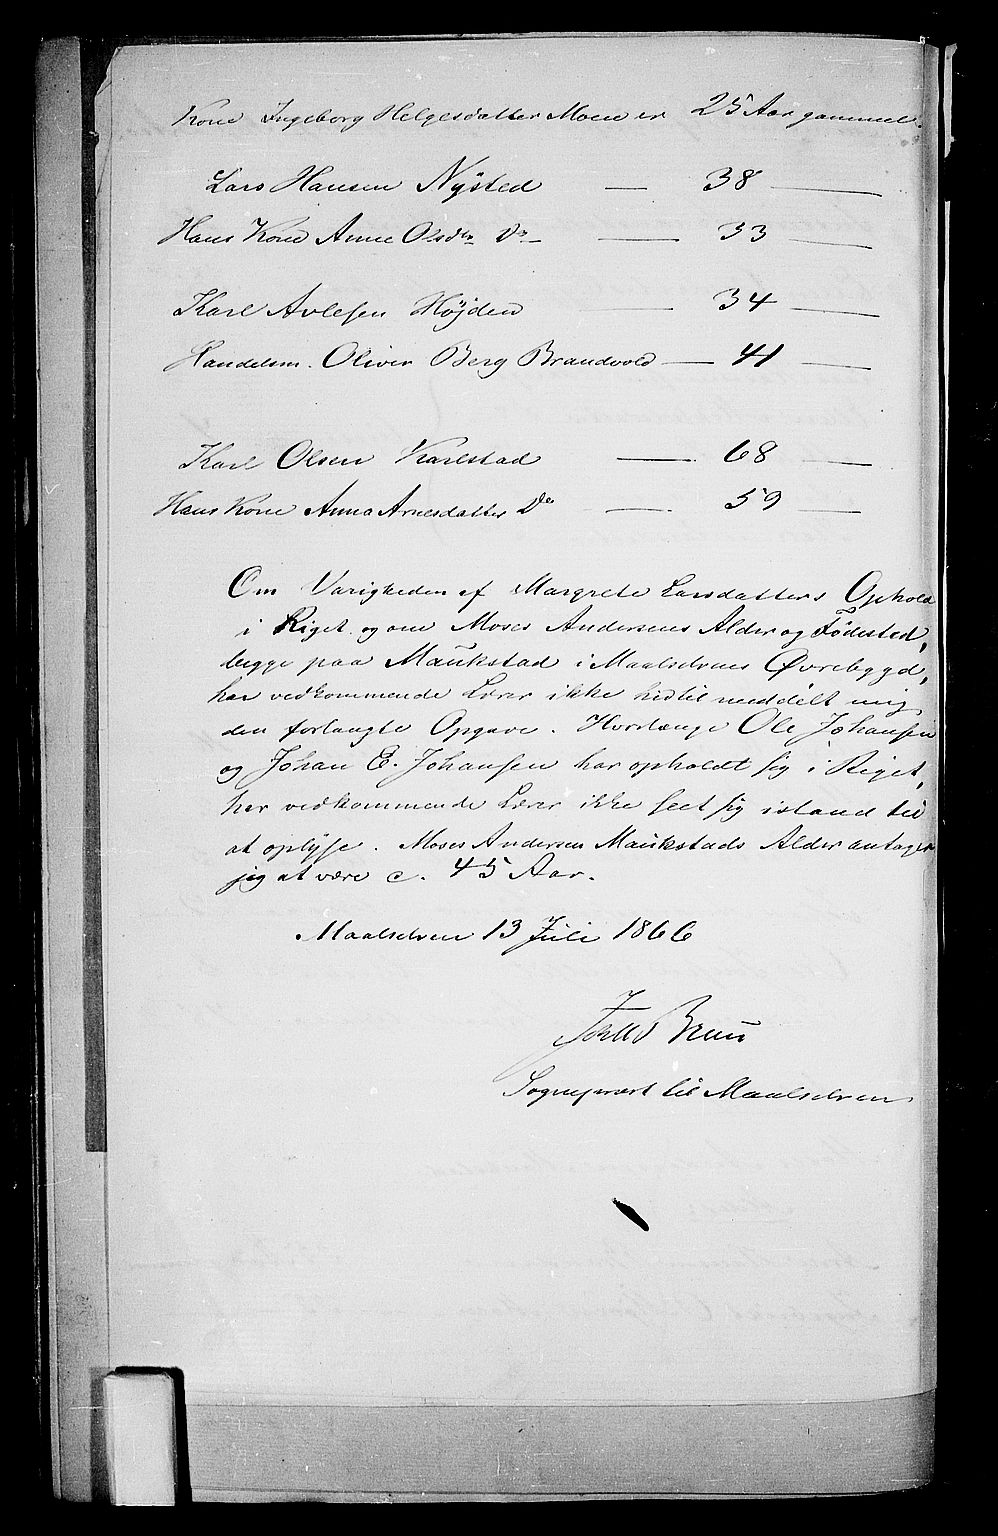 Kone Ingeborg Helgesdatter Moen er 25 Aar gammel.
Lars Hansen Nysted — 38 —
Hans Kone Anne Olsdtr Do — 33 —
Karl Avlesen Højden — 34 —
Handelsm. Oliver Berg Brandvold — 41 —
Karl Olsen Karlstad — 68 —
Hans Kone Anna Arnesdatter Do — 59 —
Om Varigheden af Margrete Larsdatters Ophold
i Riget og om Moses Andersens Alder og Fødested,
begge paa Maukstad i Maalselvens Øvrebygd,
har vedkommende Lærer ikke hidtil meddelt mig
den forlangte Opgave. Hvorlænge Ole Johansen
og Johan E. Johansen har opholdt sig i Riget,
har vedkommende Lærer ikke seet sig istand til
at oplyse. Moses Andersen Maukstads Alder antager
jeg at være c. 45 Aar.
Maalselven 13 Juli 1866
Bruun
Sognepræst til Maalselven